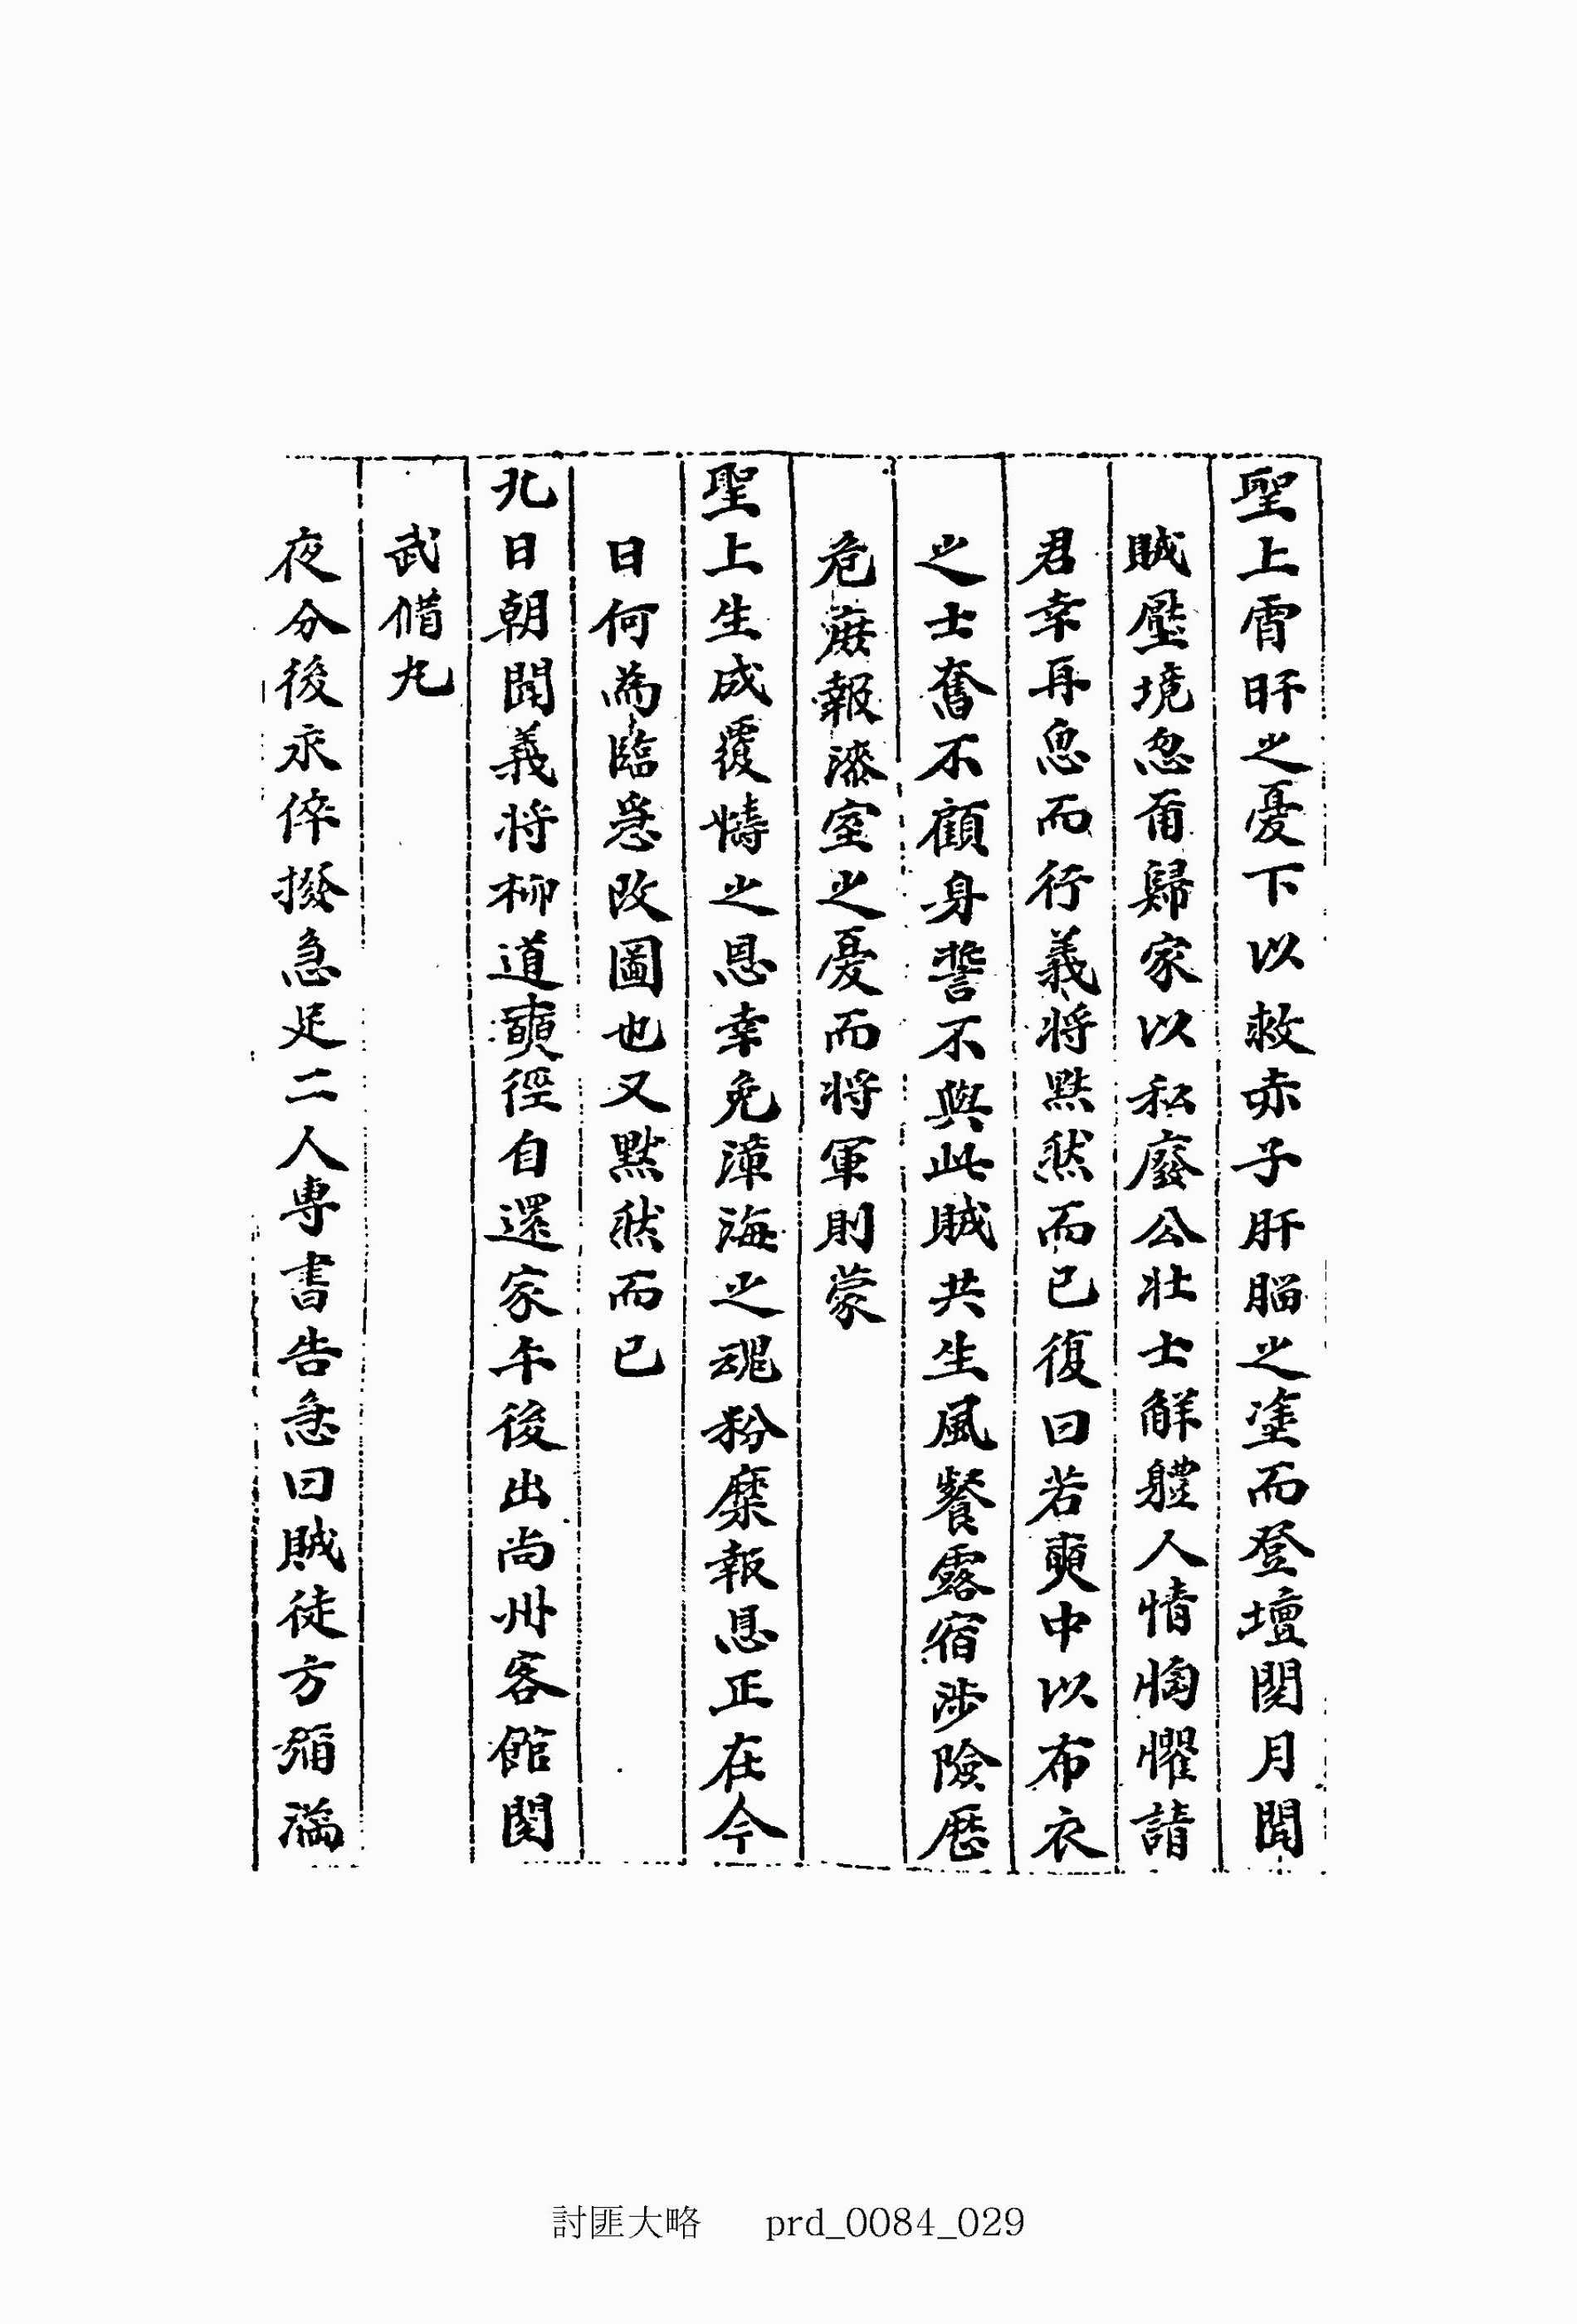 聖上宵旰之憂下以救赤子肝腦之塗而登壇閱月聞
賊壓境忽爾歸家以私廢公壯士觧軆人情恟懼請
君幸再思而行義將黙然而已復曰若奭中以布衣
之士奮不顧身誓不與此賊共生風餐露宿涉險歷
危庶報漆室之憂而將軍則蒙
聖上生成覆幬之恩幸免漳海之魂粉糜報恩正在今
日何為臨急改圖也又黙然而已
九日朝聞義將柳道奭徑自還家午後出尚州客館閱
武俻九
夜分後永倅撥急足二人専書告急曰賊徒方彌滿
討匪大略 prd_0084_029